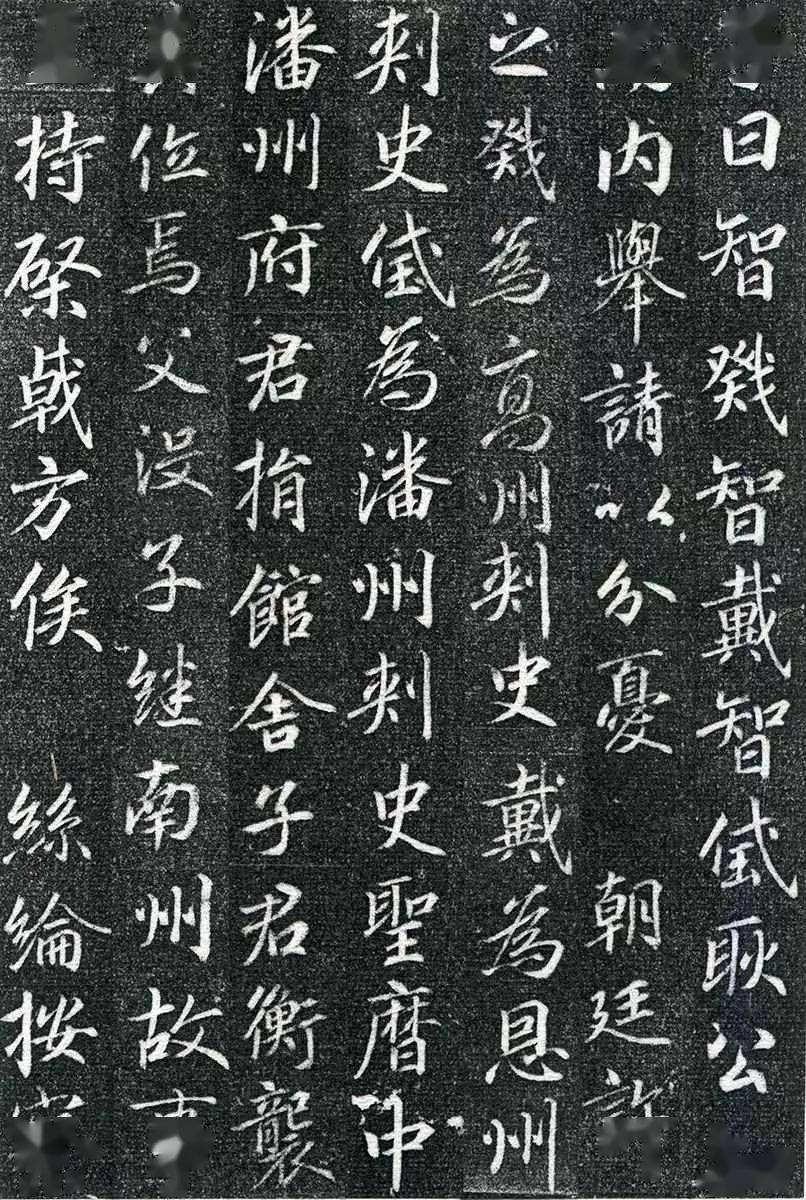 曰智戣智戴智玳耿公
内舉請以分憂 朝廷許
之戣為高州刺史戴為恩州
刺史玳為潘州刺史聖暦中
潘州府君捐館舍子君衡襲
位焉父没子継南州故
持棨戟方俟 絲綸按